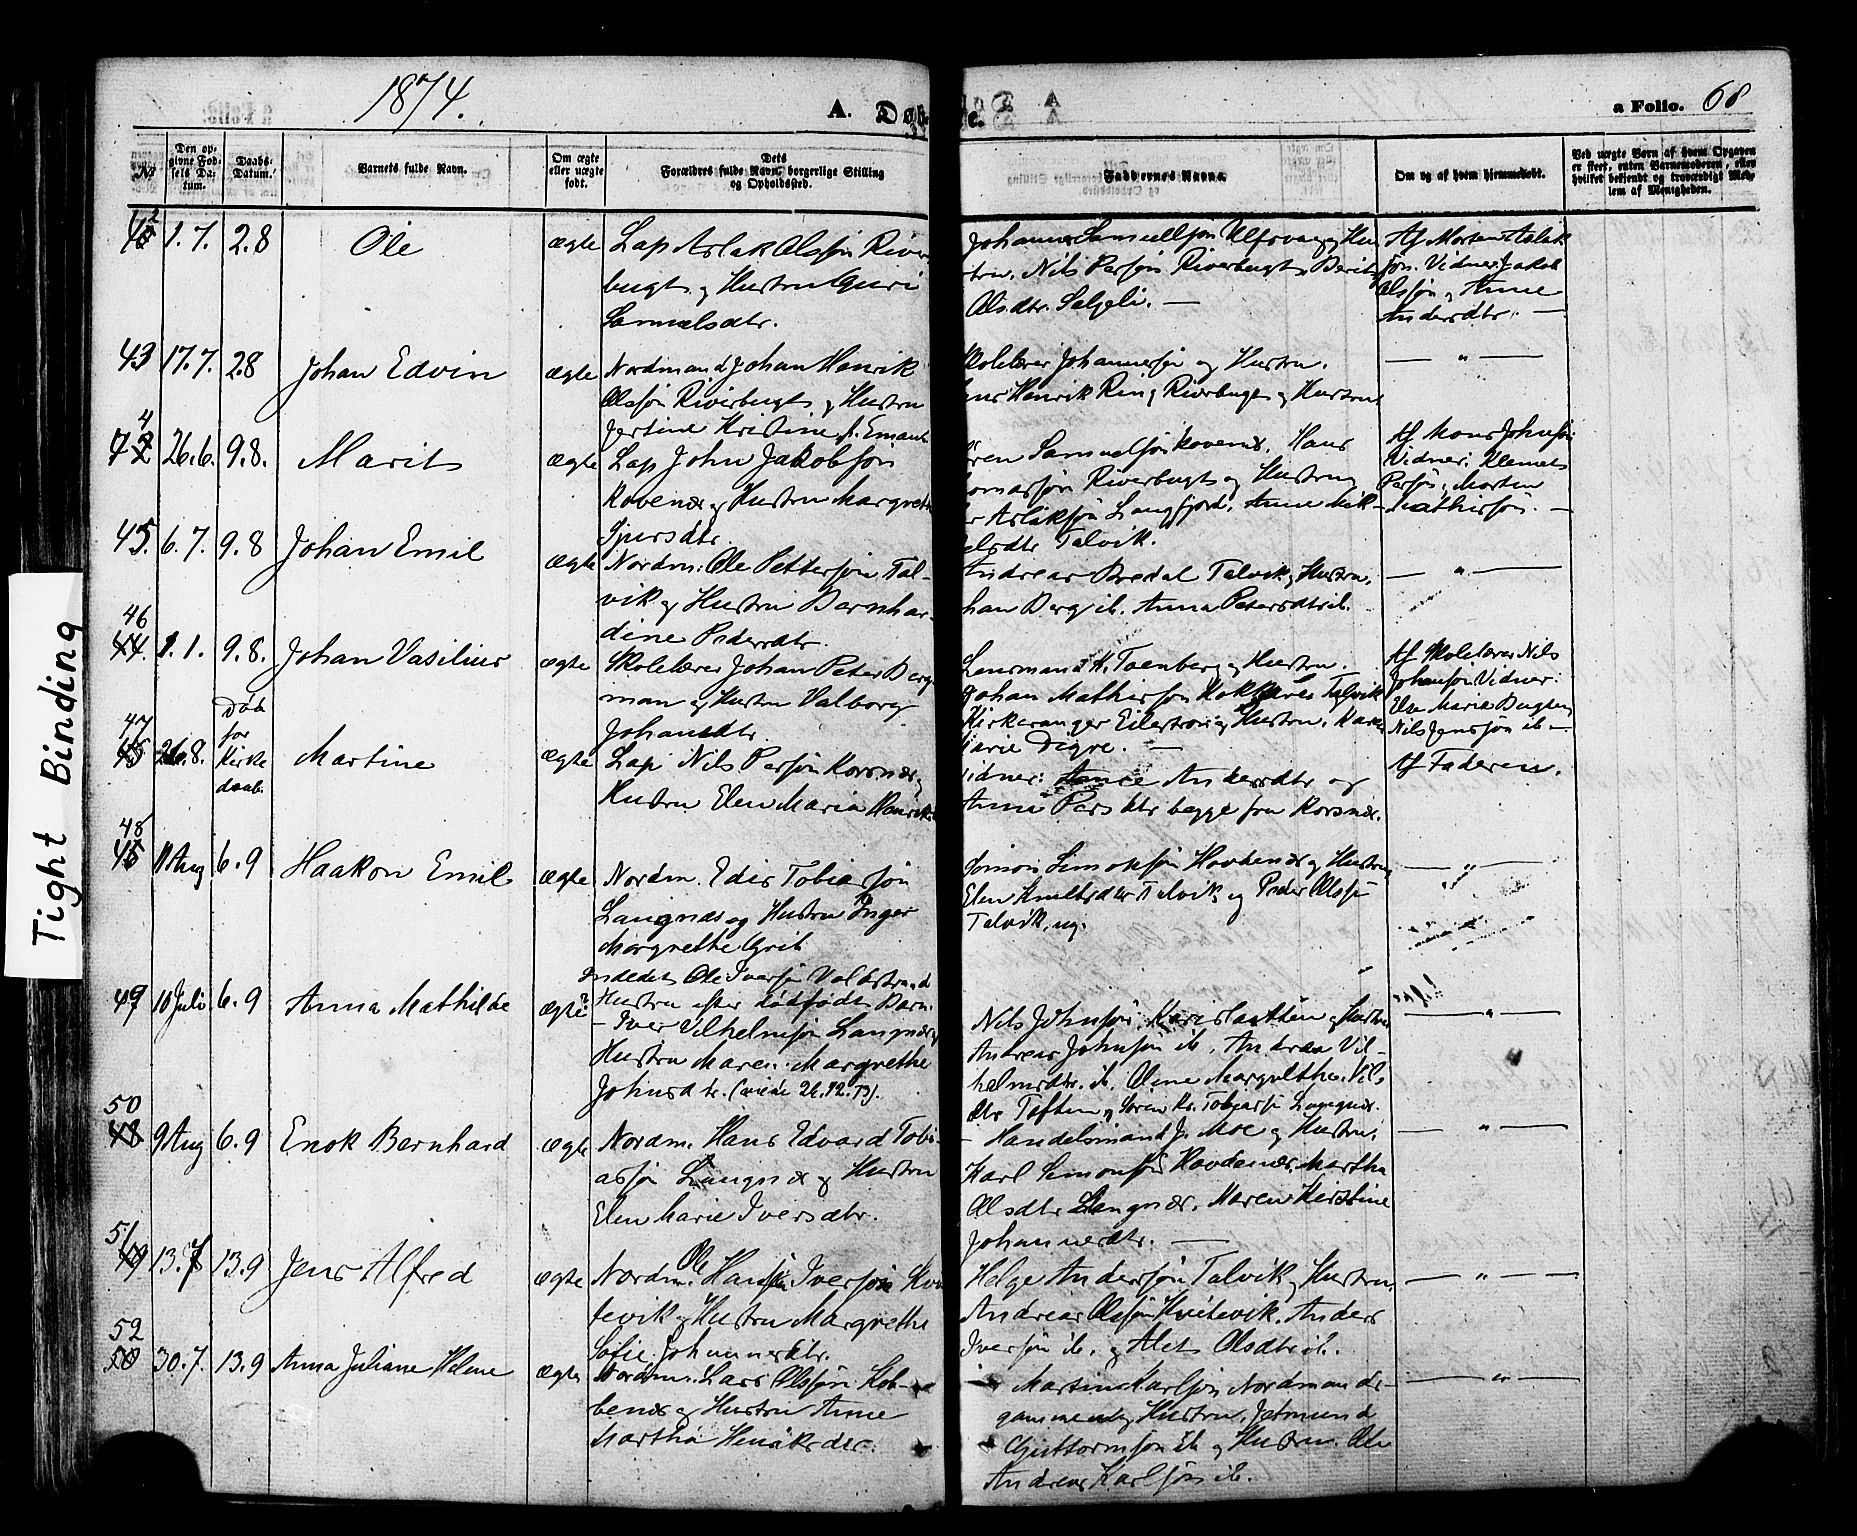 1874.
A. Døbte.
a Folio. 68
№
Den opgivne Fodsels Datum.
Daabs-Datum.
Varnets fulde Navn.
Om ægte eller uægte født.
Dets Forældres fulde Navn, borgerlige Stilling og Opholdssted.
Faddernes Navne.
Om og af hvem hjemmedøbt.
Ved uægte Børn af hvem Opgaven er skeet, enten Barnemoderen, eller hvilket bekjendt og troværdigt Medlem af Menigheden.
Tight Binding
42 1.7. 2.8 Ole ægte Lap Aslak Olssøn River-
bugt og Hustru Guri
Samuelsdtr.
Johannes Samuelsøn Ulfsvaag og Hu-
stru. Nils Persøn Riverbugt, Berit
Olsdtr. Seljeli. —
Af Morten Aslak-
søn. Vidner: Jakob
Olssøn og Anne
Andersdtr. —
43 17.7. 2.8 Johan Edvin ægte Nordmand Johan Henrik
Olssøn Riverbugt og Hustru
Jertine Kristine
Skolelærer Johannessøn og Hustru.
Henrik Ring Riverbugt og Hustru
— " —
44 26.6. 9.8. Marit ægte Lap John Jakobsøn
Kovenæs og Hustru Margrethe
Gjursdtr.
Søren Samuelsøn Kovenæs. Hans
Riverbugt og Hustru
Aslaksøn Langfjord, Anne Mik-
kelsdtr Talvik.
Af Mons Johnsøn
Vidner: Klemet
Persøn, Morten
Mathisøn. —
45. 6.7. 9.8 Johan Emil ægte Nordm. Ole Pettersøn Tal-
vik og Hustru Bernhar-
dine Pedersdtr.
Andreas Bredal Talvik og Hustru,
Johan Berg ib. Anna Petersdtr ib.
— " —
46 44. 1.1. 9.8. Johan Vasilius ægte Skolelærer Johan Peter Berg-
man og Hustru Valborg
Johansdtr.
Lensmand H. Toenberg og Hustru.
Johan Mathisøn Talvik
Kirkesanger Eilertsen og Hustru, Karen
Marie Digre. —
Af Skolelærer Nils
Johansøn Vidner:
Else Marie
Nils Jensøn ib —
47 45 26.8. Døb for Kirke daab. Martine ægte Lap Nils Persøn Korsnæs og
Hustru Elen Maria Henriks
Vidner: Anne Andersdtr og
Anne Persdtr begge fra Korsnæs.
Af Faderen.
48 11 Aug 6.9 Haakon Emil ægte Nordm. Edis Tobiassøn
Langnæs og Hustru Inger
Margrethe Grit
Simon Simonsøn Hovdenæs og Hustru
Elen Knutsdtr Talvik og Peder Olssøn
Talvik, ug.
— " —
49 10 Juli 6.9 Anna Mathilde ægte
Indledet Ole Iversøn Valdstrand
Hustru efter dødfødt Barn.
— Iver Vilhelmsøn Langnæs og
Hustru Maren Margrethe
Johnsdtr. (viede 26.12.73).
Nils Johnsøn og Hustru
Andreas Johnsøn ib, Andrea Vil-
helmsdtr. ib. Oline Margrethe Vil.
dtr Toften og Søren Kr. Tobiassøn Langnæs.
— " —
50 48 9 Aug 6.9 Enok Bernhard ægte Nordm. Hans Edvard Tobi-
assøn Langnæs og Hustru
Elen Marie Iversdtr.
— Handelsmand J. Moe og Hustru,
Karl Simonsøn Hovdenæs, Martha
Olsdtr Langnæs, Maren Kirstine
Johannesdtr. —
— " —
51 49 13.7 13.9 Jens Alfred ægte Nordm. Ole Hansøn Iversøn Kvi-
tevik og Hustru Margrethe
Sofie Johannesdtr.
Helge Anderssøn Talvik og Hustru,
Andreas Olssøn Kvitevik. Anders
Iversøn ib. og Alet Olsdtr ib.
— " —
52 50 30.7. 13.9 Anna Juliane Helene ægte Nordm. Lars Olssøn Kob-
benæs og Hustru Anne
Martha
Martin Karlsøn Nordmands-
gammen og Hustru, Jetmund
Guttormsøn ib og Hustru. Ole
Andreas Karlsøn ib.
— " —